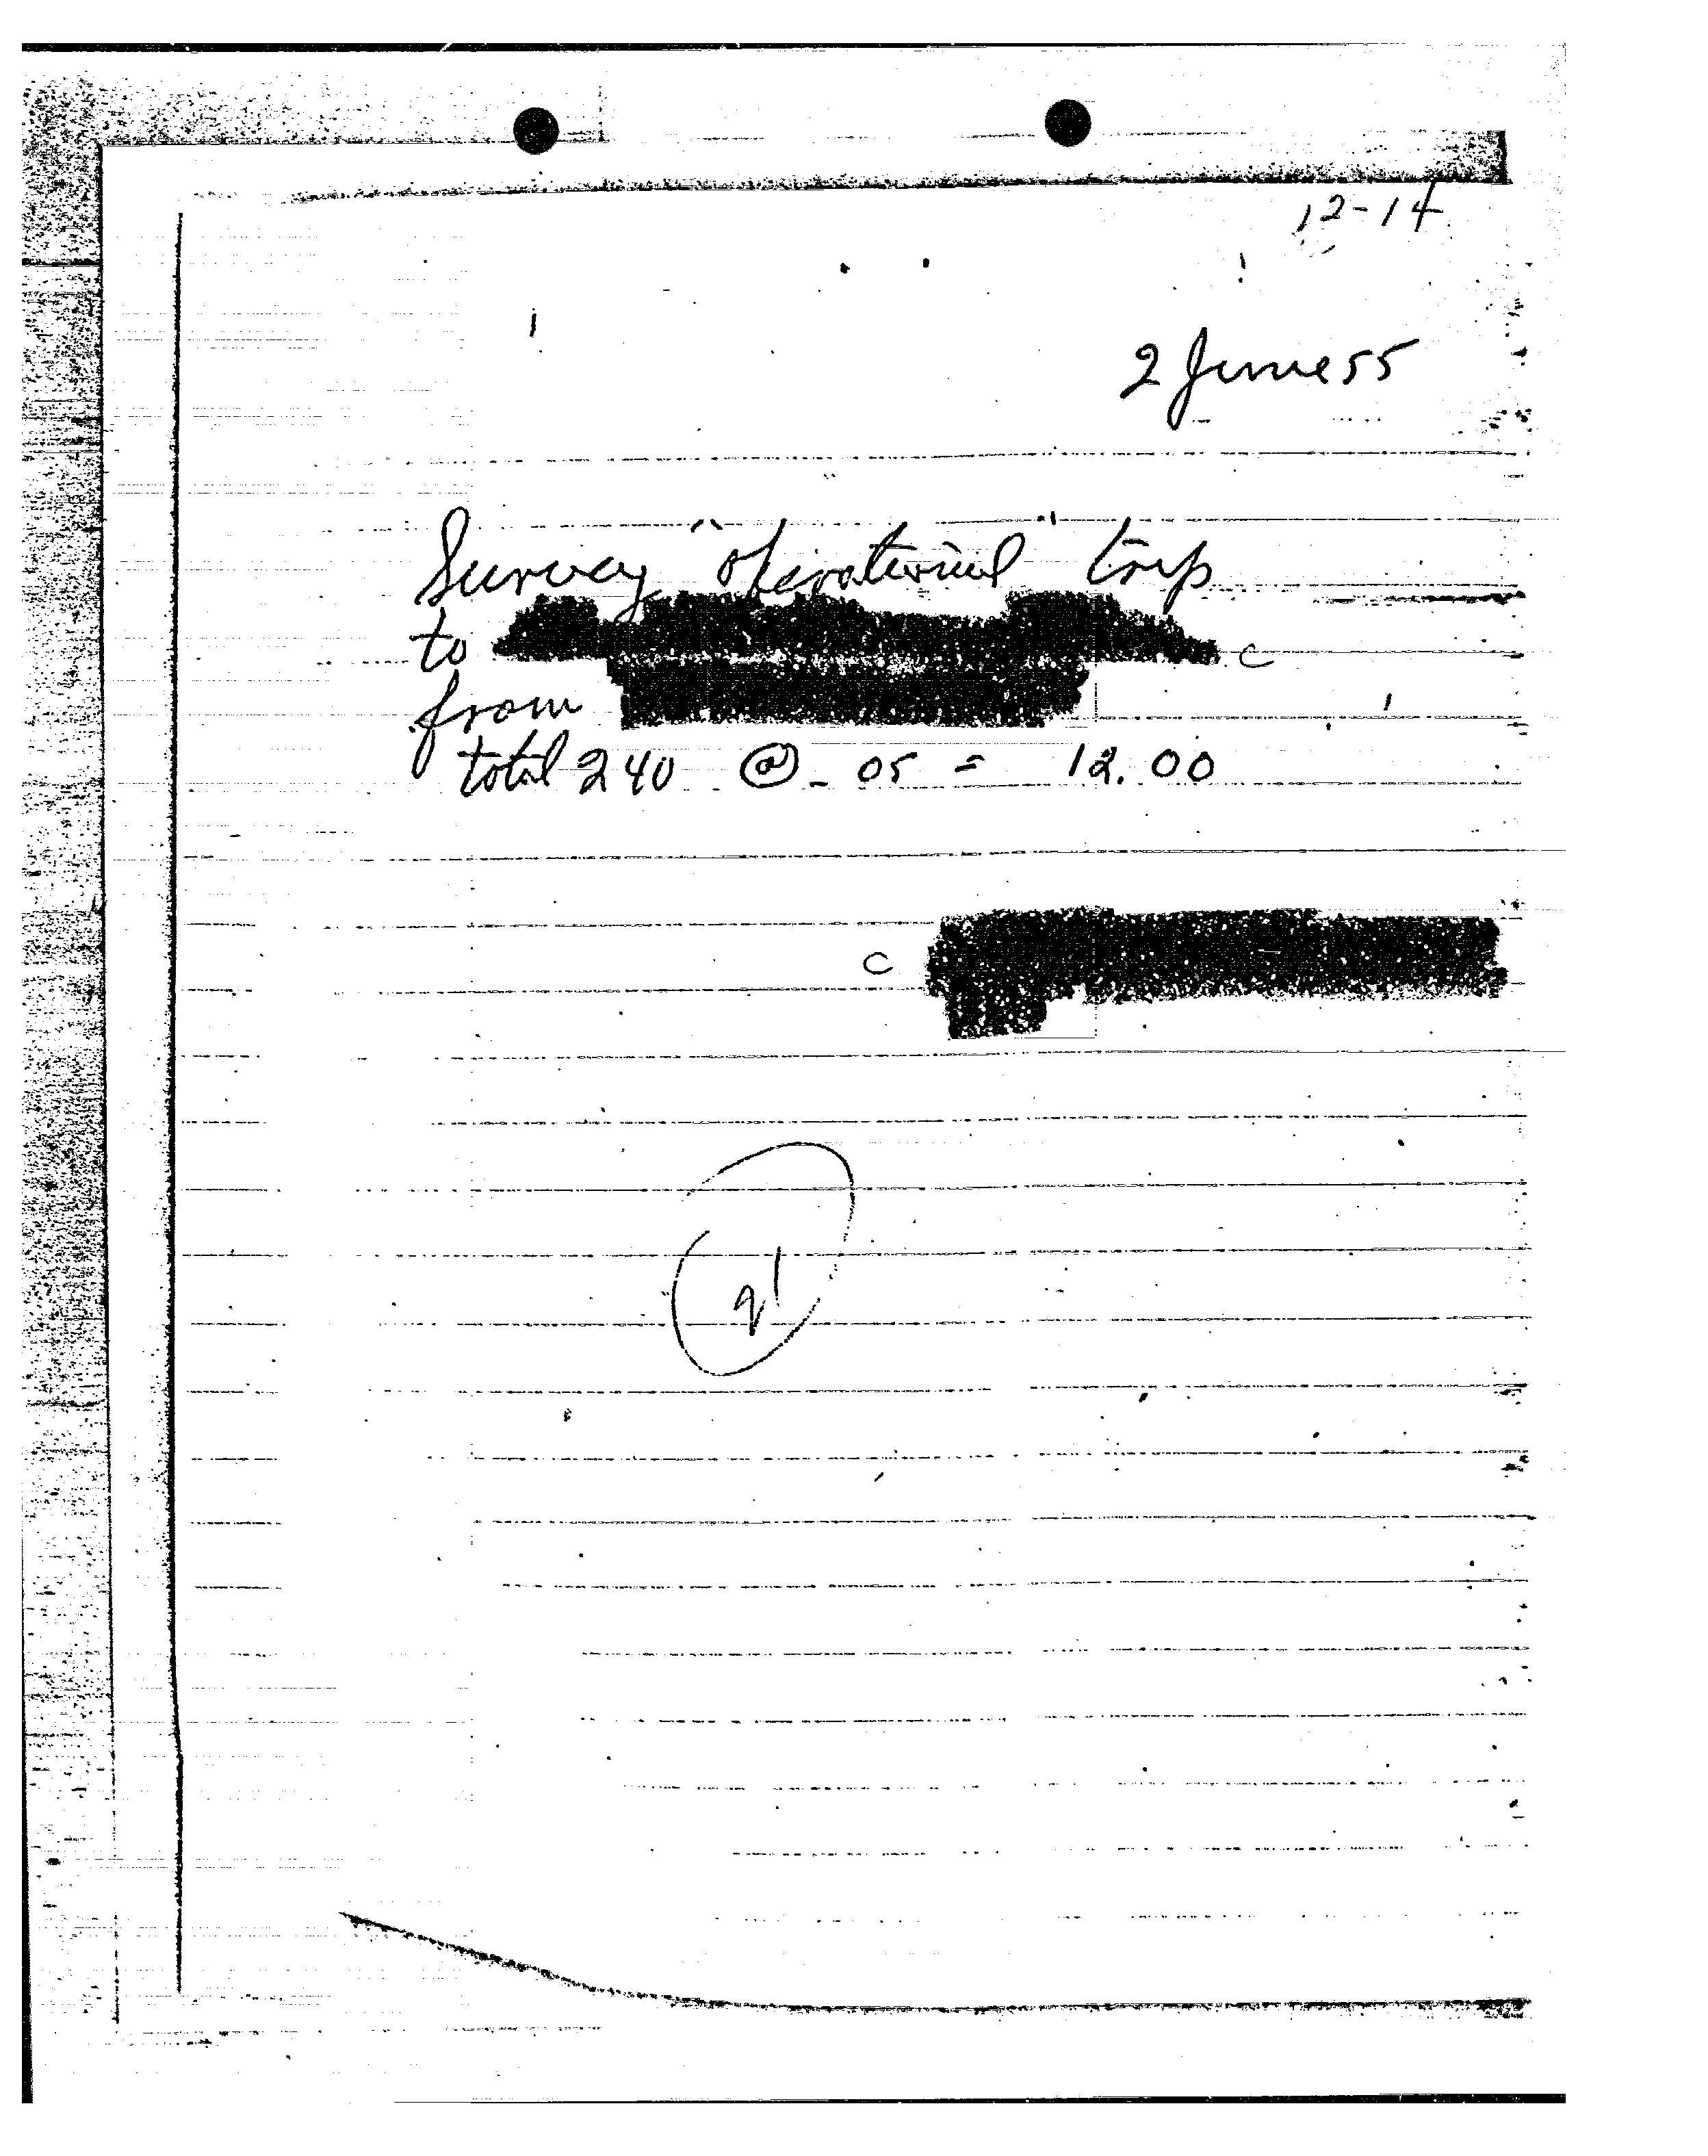 12-14
2 June 55
Survey "operational" trip
to C
from
total 240 @ .05 = 12.00
C
21